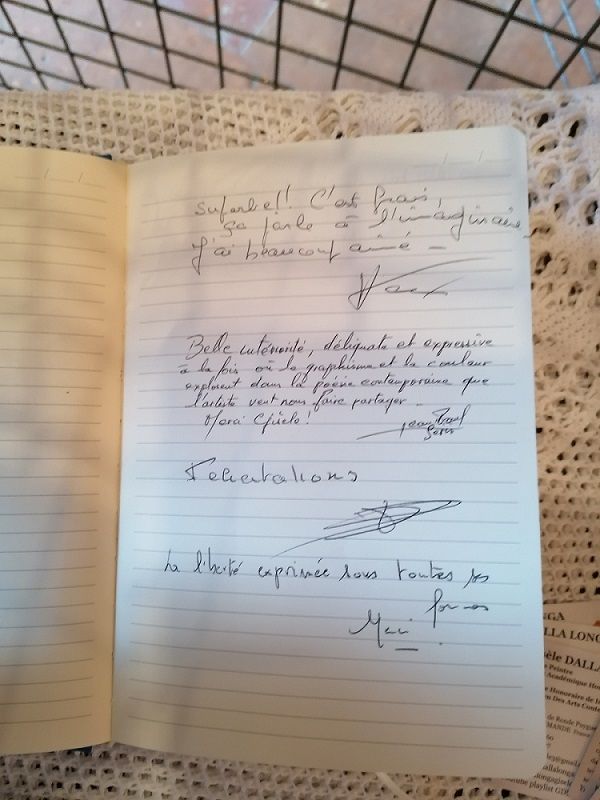 superbe!! C'est frais,
ça parle à l'imaginaire,
J'ai beaucoup aimé -
Belle intériorité, déliquate et expressive
à la fois où le graphisme et la couleur
explosent dans la poésie contemporaine que
l'artiste veut nous faire partager -
Merci Gisèle!
Jean Paul
Felicitations
La liberté exprimée sous toutes ses
formes
EGA
LLA LONG
èle DALLA
Peintre
Académique Hon
e Honoraire de
Des Arts Conte
de Ronde
MANDE
@gmail
allalonga
dallalongagisele
playlist GD